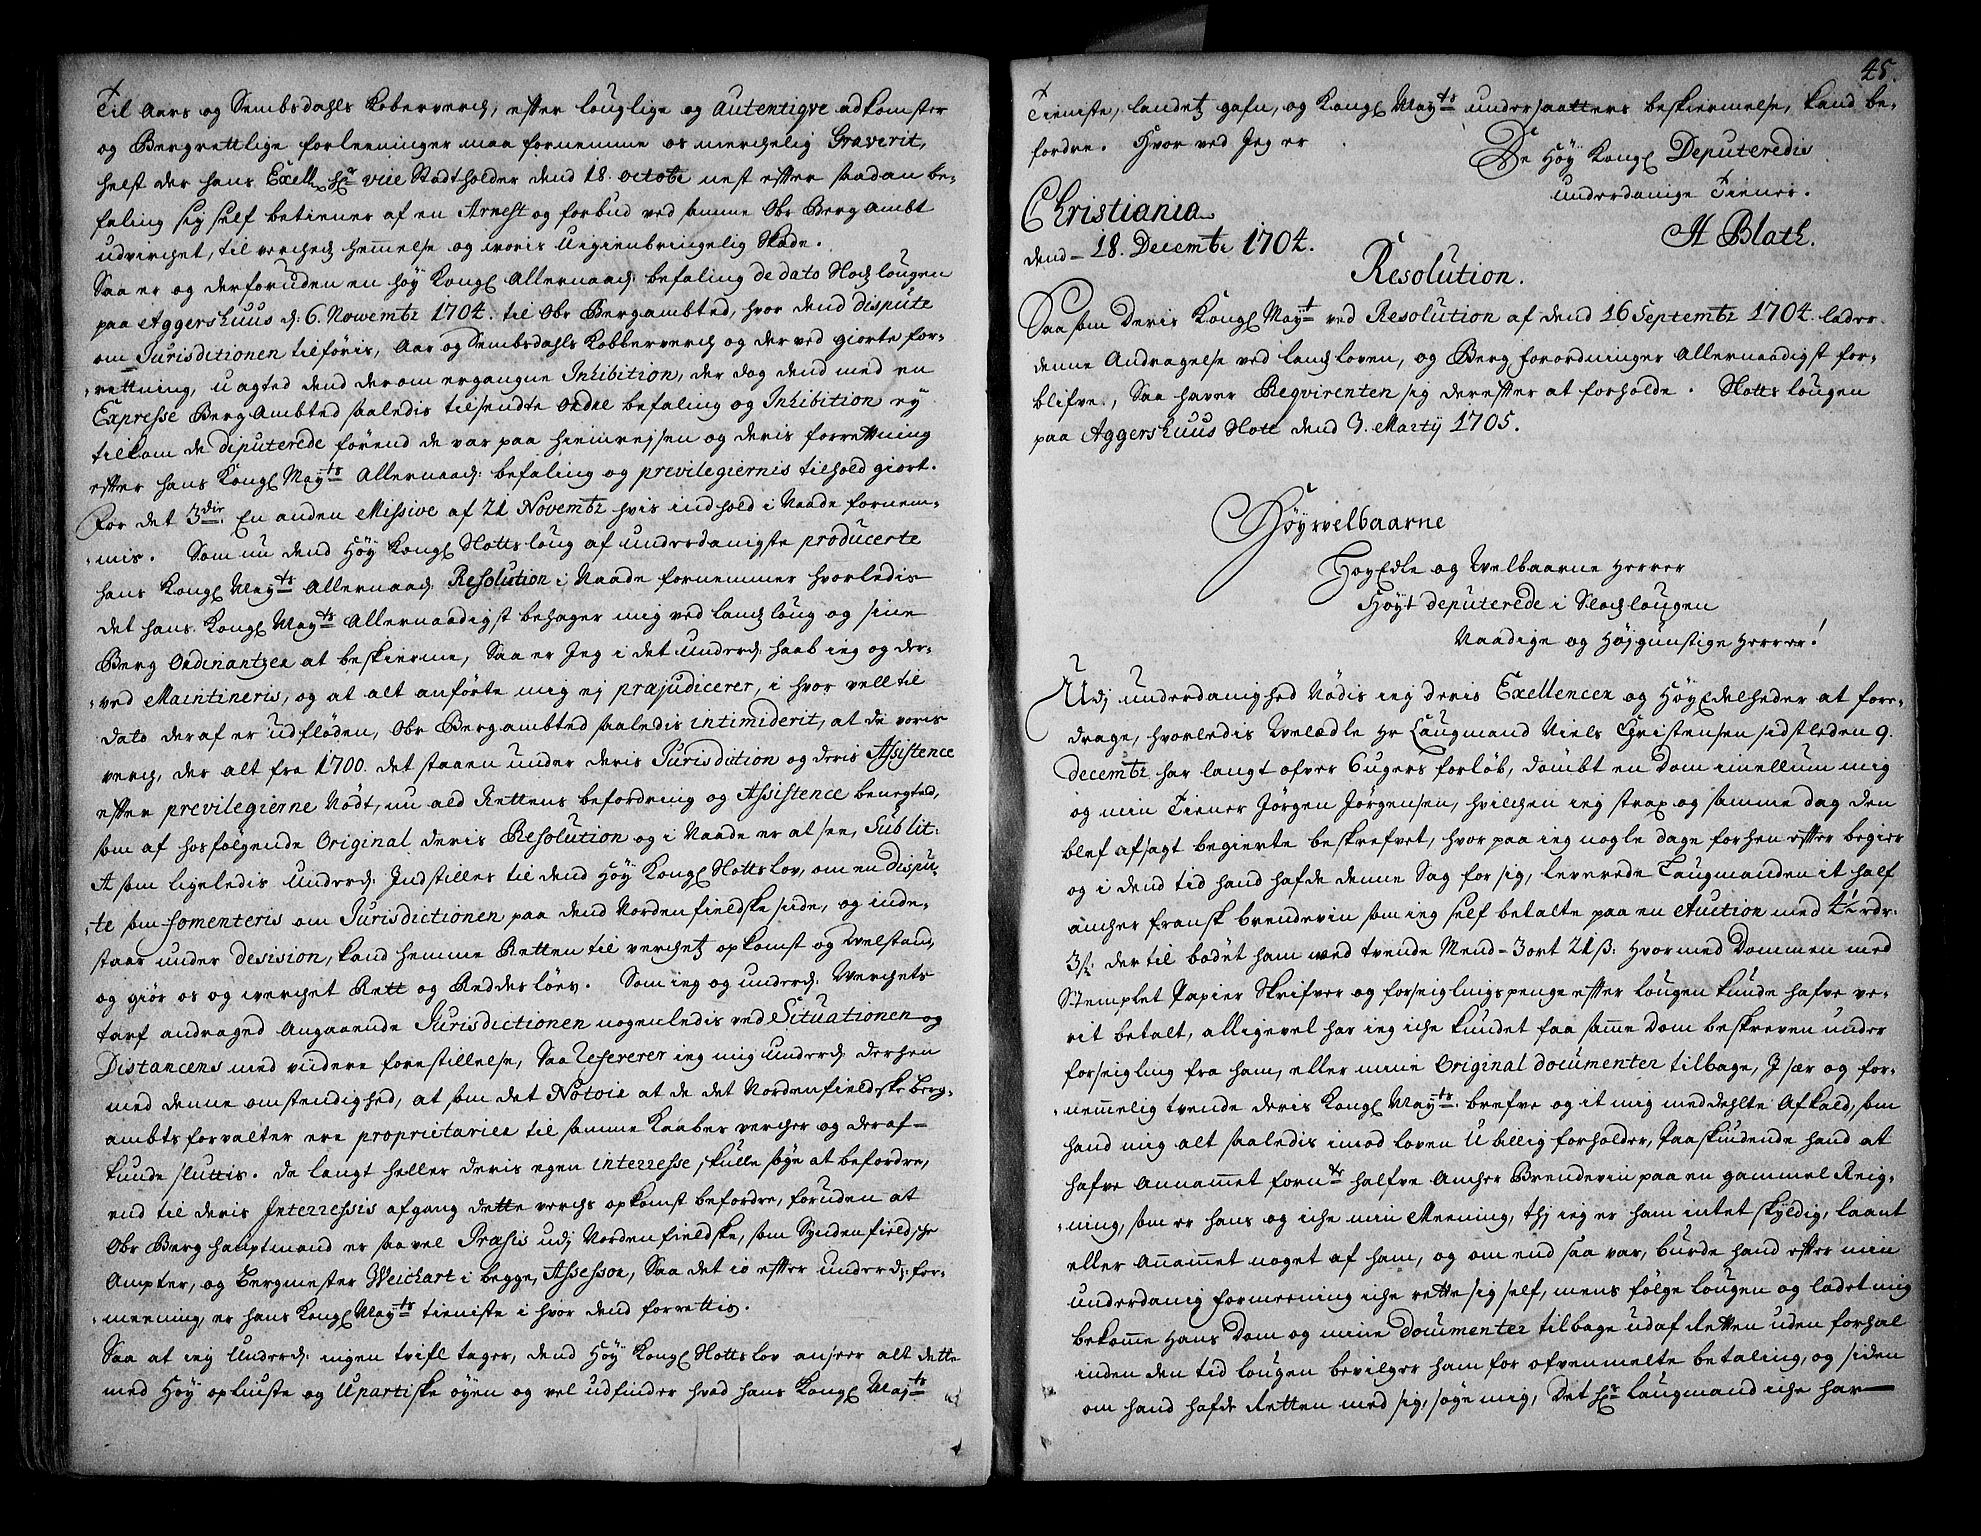 Til Aars og Sembsdahls Koberverch, effter louglige og autentiqve adkomster
og Bergrettlige forleeninger maa fornemme os merchelig Graverit,
helst der hans Excell. hr vice Stadtholder dend 18. octobr nest effter saadan be-
faling sig self betiener af en Arrest og forbud ved samme Obr Berg Ambt
udvirchet, til verched hemmelse og woris uigienbringelig Skade.
Saa er og derforuden en høy Kongl Allernaad: befaling de dato Slodslougen
paa Aggershuus d: 6. Novembr 1704. til Obr Bergambted, hvor dend dispute
om Jurisditionen tilføris, Aar og Sembsdahls Kobberverch og der ved giorte for-
rettning, uagted dend derom ergangne Inhibition, der dog dend med en
Expresse Berg Ambted saaledis tilsendte ordre befaling og Inhibition ey
tilkom de deputerede førend de var paa hiemreysen og deris forrettning
effter hans Kongl Maytts Allernaad: befaling og previlegiernis tilhold giort.
For det 3die. En anden Missive af 21 Novembr hvis indhold i Naade fornem-
mis. Som nu dend høy Kongl Slottsloug af underdanigste producerte
hans Kongl Maytts Allernaad: Resolution i Naade fornemmer hvorledis
det hans Kongl Maytts Allernaadigst behager mig ved landloug og sine
Berg Ordinantzer at beskierme, Saa er Jeg i det underd: haab ieg og der-
ved Maintineris, og at alt anførte mig ej præjudicerer, i hvor vell til
dato deraf er udfloden, Obr Bergambted saaledis intimiderit, at de voris
verch, der alt fra 1700. det staaen under deris Jurisdiction og deris Assistence
effter previlegierne Nødt, nu all Rettens befordring og Assistence benegted,
som af hosfølgende Original deris Resolution og i Naade er at see, Sub lit:
A som ligeledis underd: Indstilles til dend høy Kongl Slottslov, om en dispu-
te som fomenteris om Jurisdictionen paa dend Nordenfieldske side, og inde-
staar under desision, kand hemme Retten til verchetz opkomst og Velstand,
og giør os og verchet Rett og Reddesløes. Som ieg og underd: Verchets
tarf andraged angaaende Jurisdictionen nogenledis ved Situationen og
Distancens med viidere forestillelse, Saa refererer ieg mig underd: derhen
med denne omstendighed, at som det Notoir at de det Nordenfieldske Berg-
ambts forvalter ere proprietarier til samme Kaaber vercher og deraf
kunde sluttis. De langt heller deris egen interresse skulle søge at befordre,
end til deris Interressis afgang dette verchs opkomst befordre, foruden at
Obr Berghauptmand er saavel Præsis udj Nordenfieldske, som Syndenfieldsche
Ampter, og Bergmester Weichart i begge, Assessor, Saa det io effter underd: for-
meening, er hans Kongl Maytts tieniste i hvor dend forrettis.
Saa at ieg Underd: ingen tvifl tager, dend Høy Kongl Slottslov anseer alt dette
med Høy opliuste og Upartiske øyen og vel udfinder hvad hans Kongl Maytts
48.
Tieniste, landetz gafn, og Kongl Maytts undersaatters beskiermelse, kand be-
fordre. Hvor ved Jeg er
De Høy Kongl Deputeredis
underdanige Tiener.
Christiania
dend 18. Decembr 1704.
A Blath.
Resolution.
Saasom Deris Kongl Maytt ved Resolution af dend 16 Septembr 1704. lader
denne Andragelse ved landsloven, og Berg forordninger Allernaadigst for-
blifve, Saa haver Reqvirenten sig dereffter at forholde. Slotts lougen
paa Aggershuus Slott dend 3. Martij 1705.
Høyvelbaarne
HøyEdle og Welbaarne Herrer
Høyt deputerede i Slodslougen
Naadige og Høygunstige Herrer!
Udj underdanighed Nødis ieg deris Excellencer og HøyEdelheder at fore-
drage, hvorledis Velædle Hr Laugmand Niels Christensen sidstleden 9.
decembr har langt ofver 6 ugers forløb, dømbt en Dom imellum mig
og min Tiener Jørgen Jørgensen, hvilchen ieg strax og samme dag den
blef afsagt begierte beskrefvet, hvor paa ieg nogle dage forhen effter begier
og i dend tid hand hafde denne Sag for sig, leverede Laugmanden it half
ancher fransk brendevin som ieg self betalte paa en Auction med 4½ rdr:
3/: der til bødet ham med tvende Mend 3 ort 21 ß: hvormed Dommen med
Stemplet Papier Skrifver og forseiglnigspenge effter Lougen kunde hafve ve-
rit betalt, alligevel har ieg iche kundet faa samme dom beskreven under
forseigling fra ham, eller mine Original documenter tilbage, Jsær og for-
nemmelig tvende deris Kongl Maytts brefve og it mig meddehlte Afkald, som
hand mig alt saaledis imod loven Ubillig forholder, Paaskiudende hand at
hafve Annammet fornte halfve Ancher Brendevin paa en gammel Reig-
ning, som er hans og iche min Meening, thj ieg er ham intet skyldig, laant
eller Annammet noget af ham, og om end saa var, burde hand effter min
underdanig formeening iche rette sig self, mens følge Lougen og ladet mig
bekomme Hans Dom og mine documenter tilbage ud af Retten uden forhal
inden den tid lougen bevilger ham for ofvenmelte betaling, og siden
om hand hafde Retten med sig, søge mig, Det hr Laugmand iche har